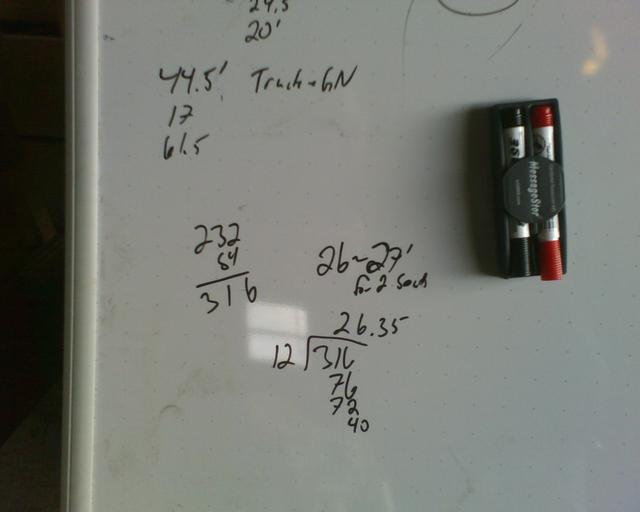 24.5
20'
44.5' Truck + GN
17
61.5
232
84
316
26-27'
for 2 such
26.35
12 316
76
72
40
MessageStor